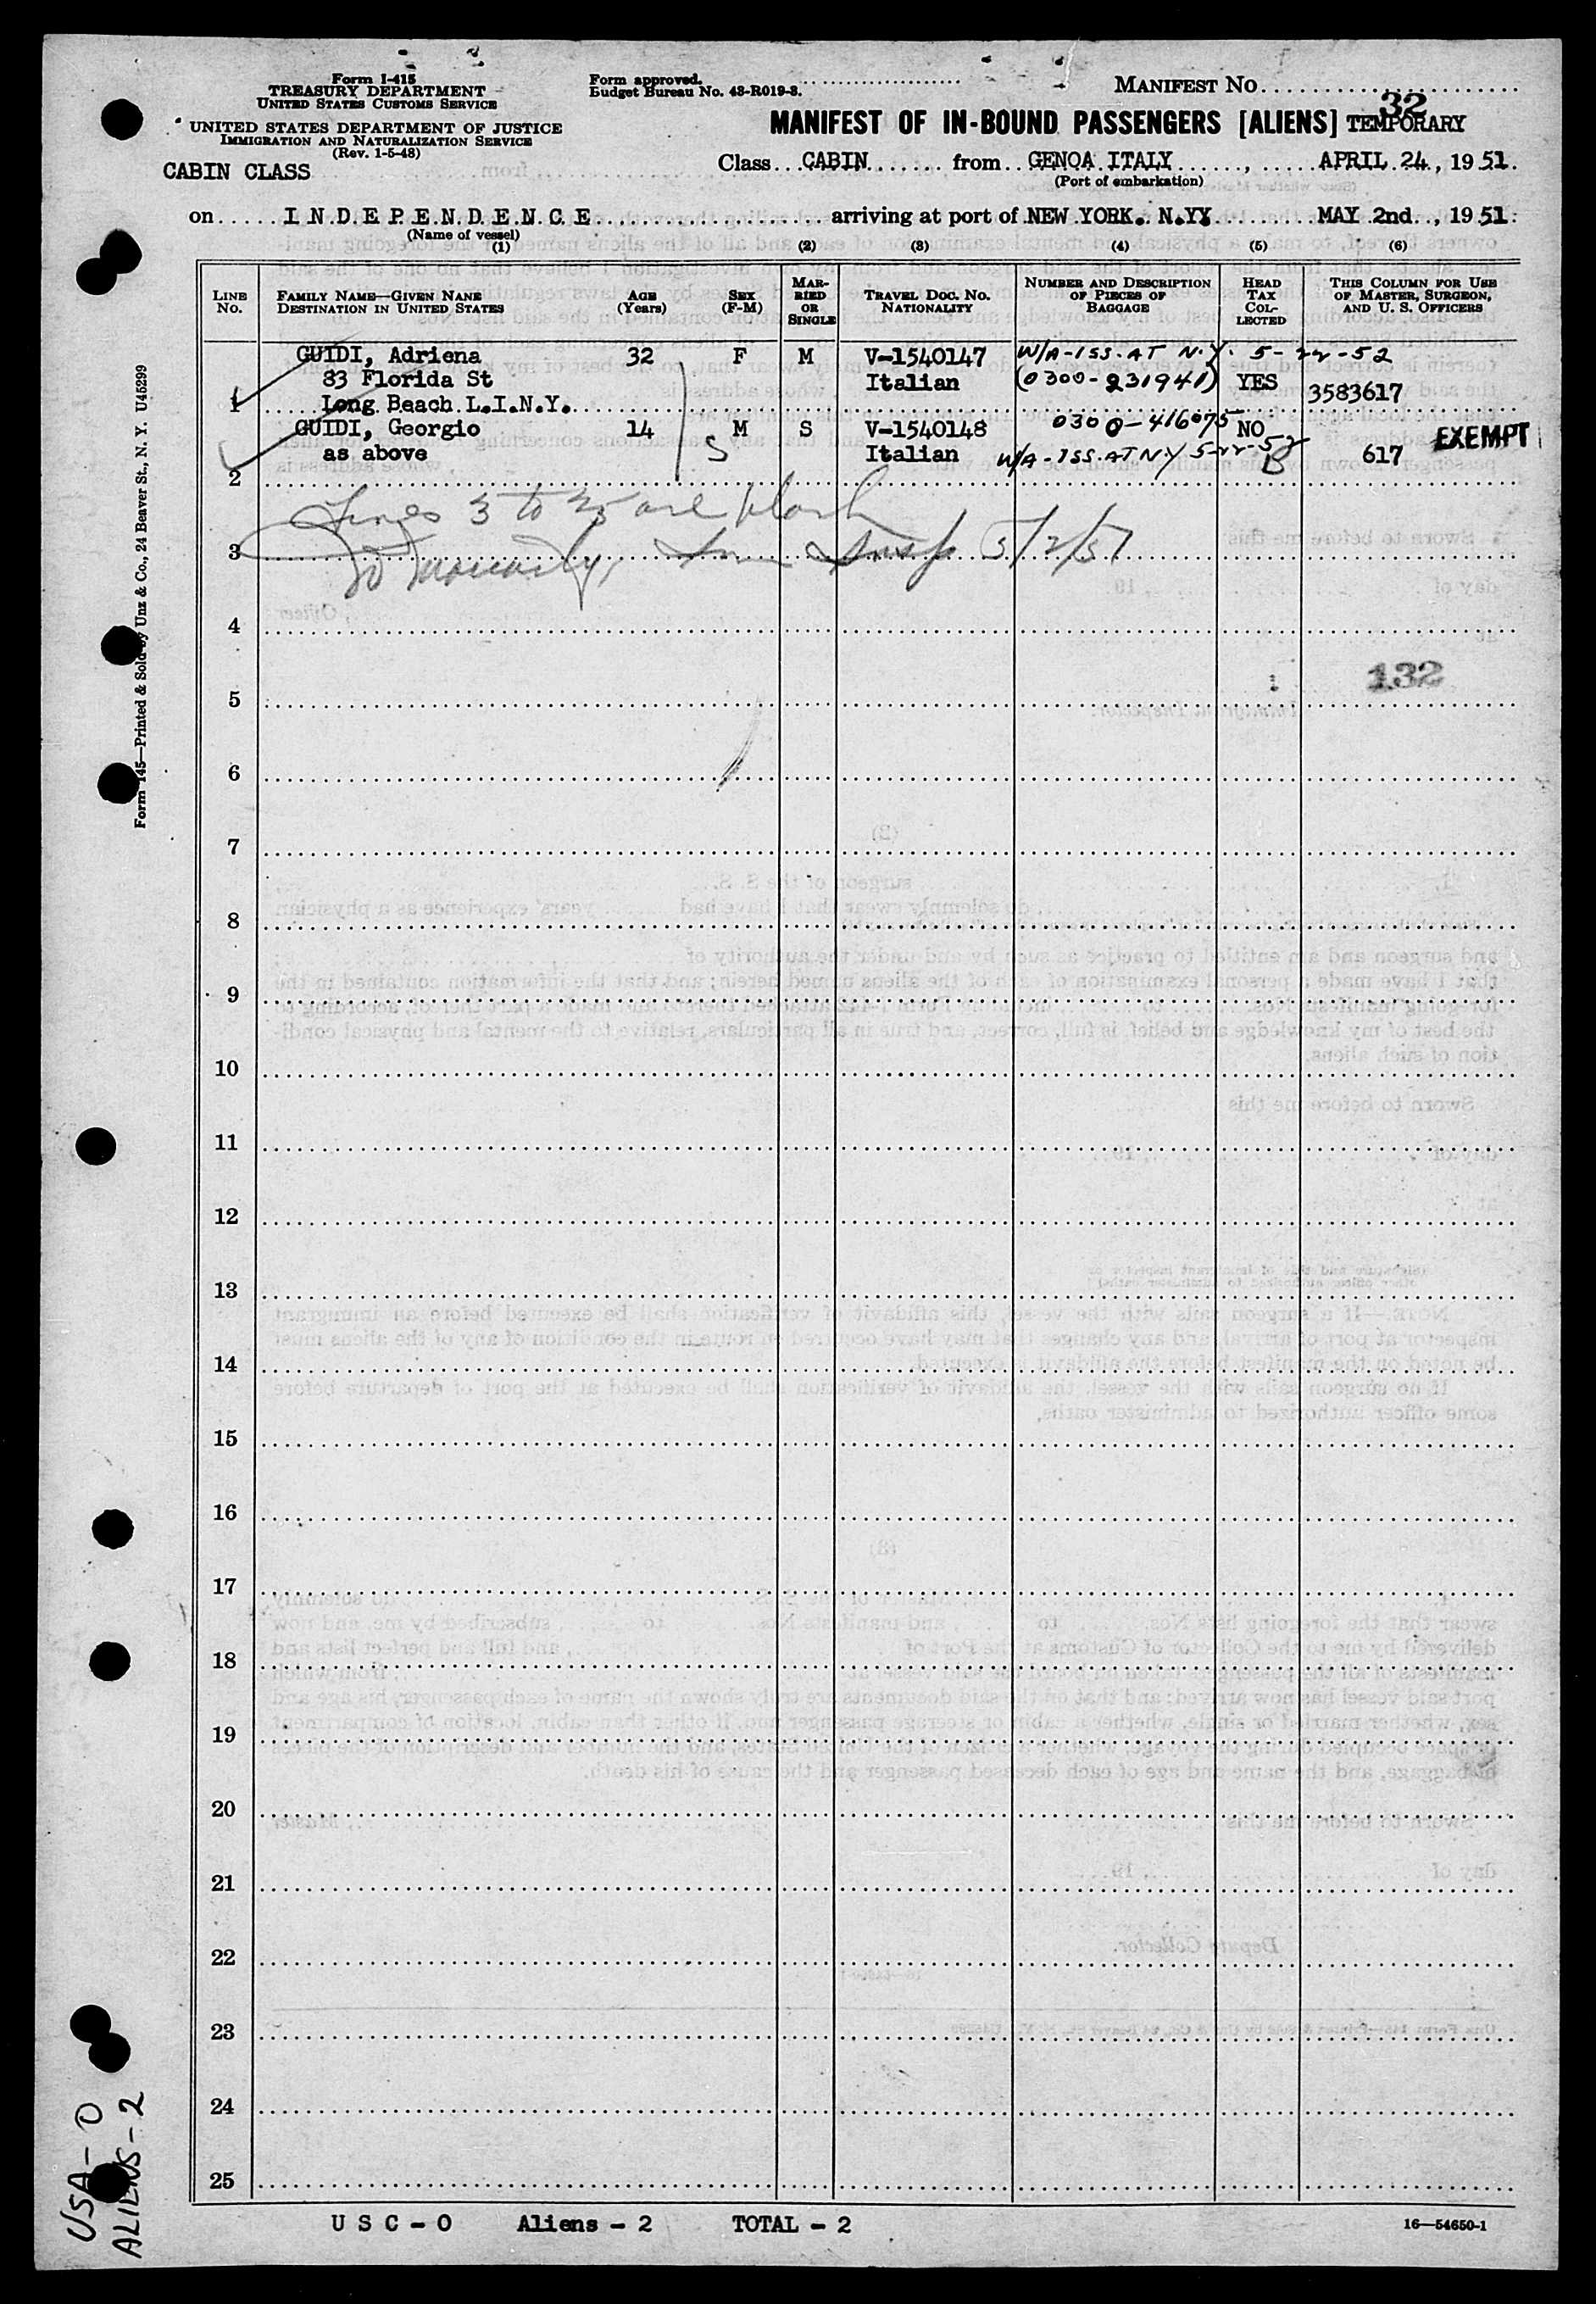 Form I-415
TREASURY DEPARTMENT
UNITED STATES CUSTOMS SERVICE
UNITED STATES DEPARTMENT OF JUSTICE
IMMIGRATION AND NATURALIZATION SERVICE
(Rev. 1-5-48)
CABIN CLASS
Form approved.
Budget Bureau No. 43-R019-3.
MANIFEST NO.
32
MANIFEST OF IN-BOUND PASSENGERS [ALIENS] TEMPORARY
Class CABIN from GENOA ITALY, APRIL 24, 1951.
(Port of embarkation)
on INDEPENDENCE arriving at port of NEW YORK. N.YY MAY 2nd., 1951.
(Name of vessel)
(1) (2) (3) (4) (5) (6)
LINE No.
FAMILY NAME—GIVEN NANE
DESTINATION IN UNITED STATES
AGE (Years)
SEX (F-M)
MARRIED OR SINGLE
TRAVEL DOC. NO.
NATIONALITY
NUMBER AND DESCRIPTION OF PIECES OF BAGGAGE
HEAD TAX COLLECTED
THIS COLUMN FOR USE OF MASTER, SURGEON, AND U. S. OFFICERS
GUIDI, Adriena 32 F M V-1540147 W/A-ISS. AT N.Y. 5-22-52
83 Florida St Italian (0300-231941) YES 3583617
1 Long Beach L.I.N.Y.
GUIDI, Georgio 14 M S V-1540148 0300-416075 NO EXEMPT
as above S Italian W/A-ISS. AT N.Y 5-22-52 B 617
2
Lines 3 to 25 are blank
3 Imm Insp 5/2/51
4
5 132
6
7
8
9
10
11
12
13
14
15
16
17
18
19
20
21
22
23
24
25
U S C - O Aliens - 2 TOTAL - 2
16—54650-1
Form 145—Printed & Sold by Unz & Co., 24 Beaver St., N. Y. U45299
USA - O
ALIENS - 2